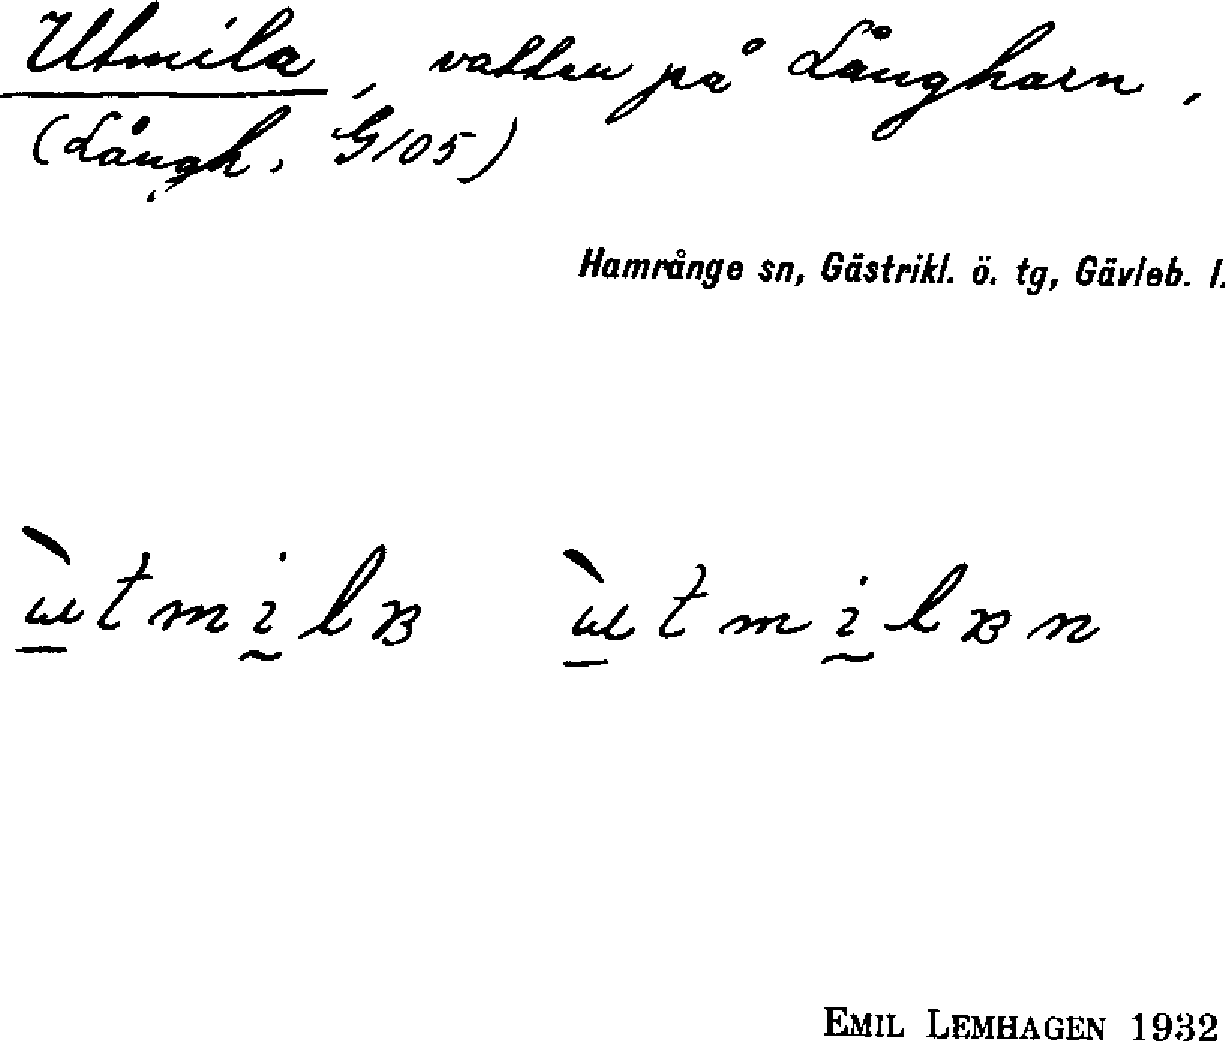 Utmila, vatten på Långharn,
(Långh. G105)
Hamrånge sn, Gästrikl. ö. tg, Gävleb. l.
ù̱tmḭlʙ ù̱tmḭlʙn
EMIL LEMHAGEN 1932